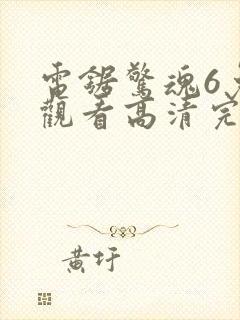 電鋸驚魂6免
觀看高清完
黃圩